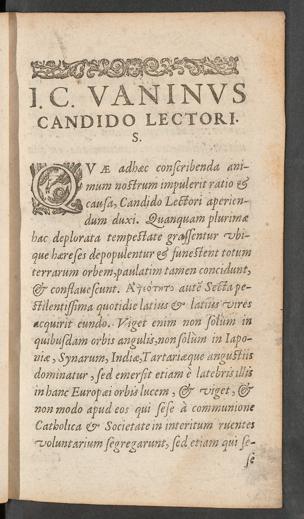 I. C. VANINVS
CANDIDO LECTORI.
S.
QVÆ adhæc conscribenda ani-
mum nostrum impulerit ratio &
causa, Candido Lectori aperien-
dum duxi. Quanquam plurimæ
hac deplorata tempestate grassentur vbi-
que hæreses depopulentur & funestent totum
terrarum orbem, paulatim tamen concidunt,
& conflauescunt. autē Secta pe-
stilentissima quotidie latius & latius vires
acquirit eundo. Viget enim non solùm in
quibusdam orbis angulis, non solùm in Iapo-
niæ, Synarum, Indiæ, Tartariæque angustiis
dominatur, sed emersit etiam è latebris illis
in hanc Europæi orbis lucem, & viget, &
non modo apud eos qui sese à communione
Catholica & Societate in interitum ruentes
voluntarium segregarunt, sed etiam qui se-
se